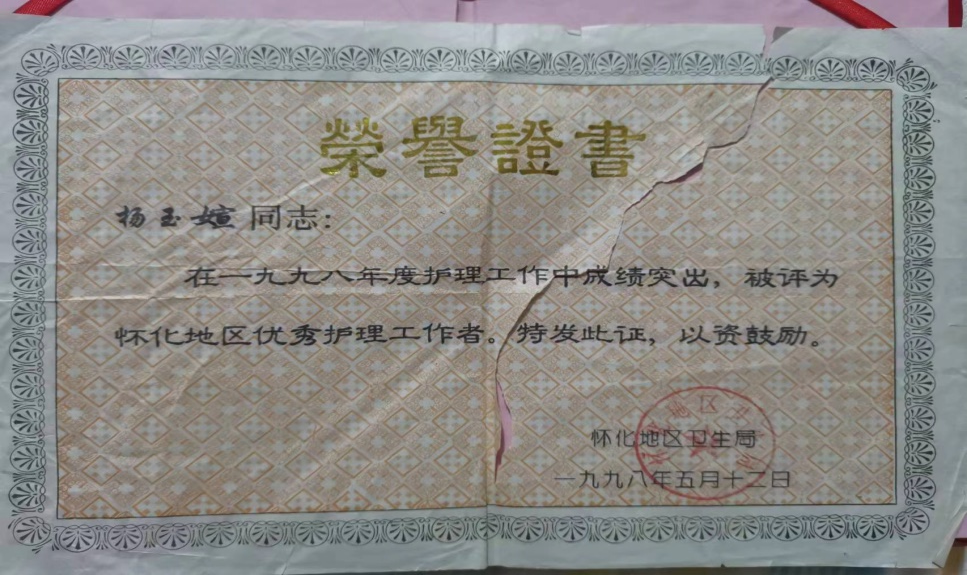 榮譽證書
杨玉媗 同志：
在一九九八年度护理工作中成绩突出，被评为
怀化地区优秀护理工作者。特发此证，以资鼓励。
怀化地区卫生局
一九九八年五月十二日